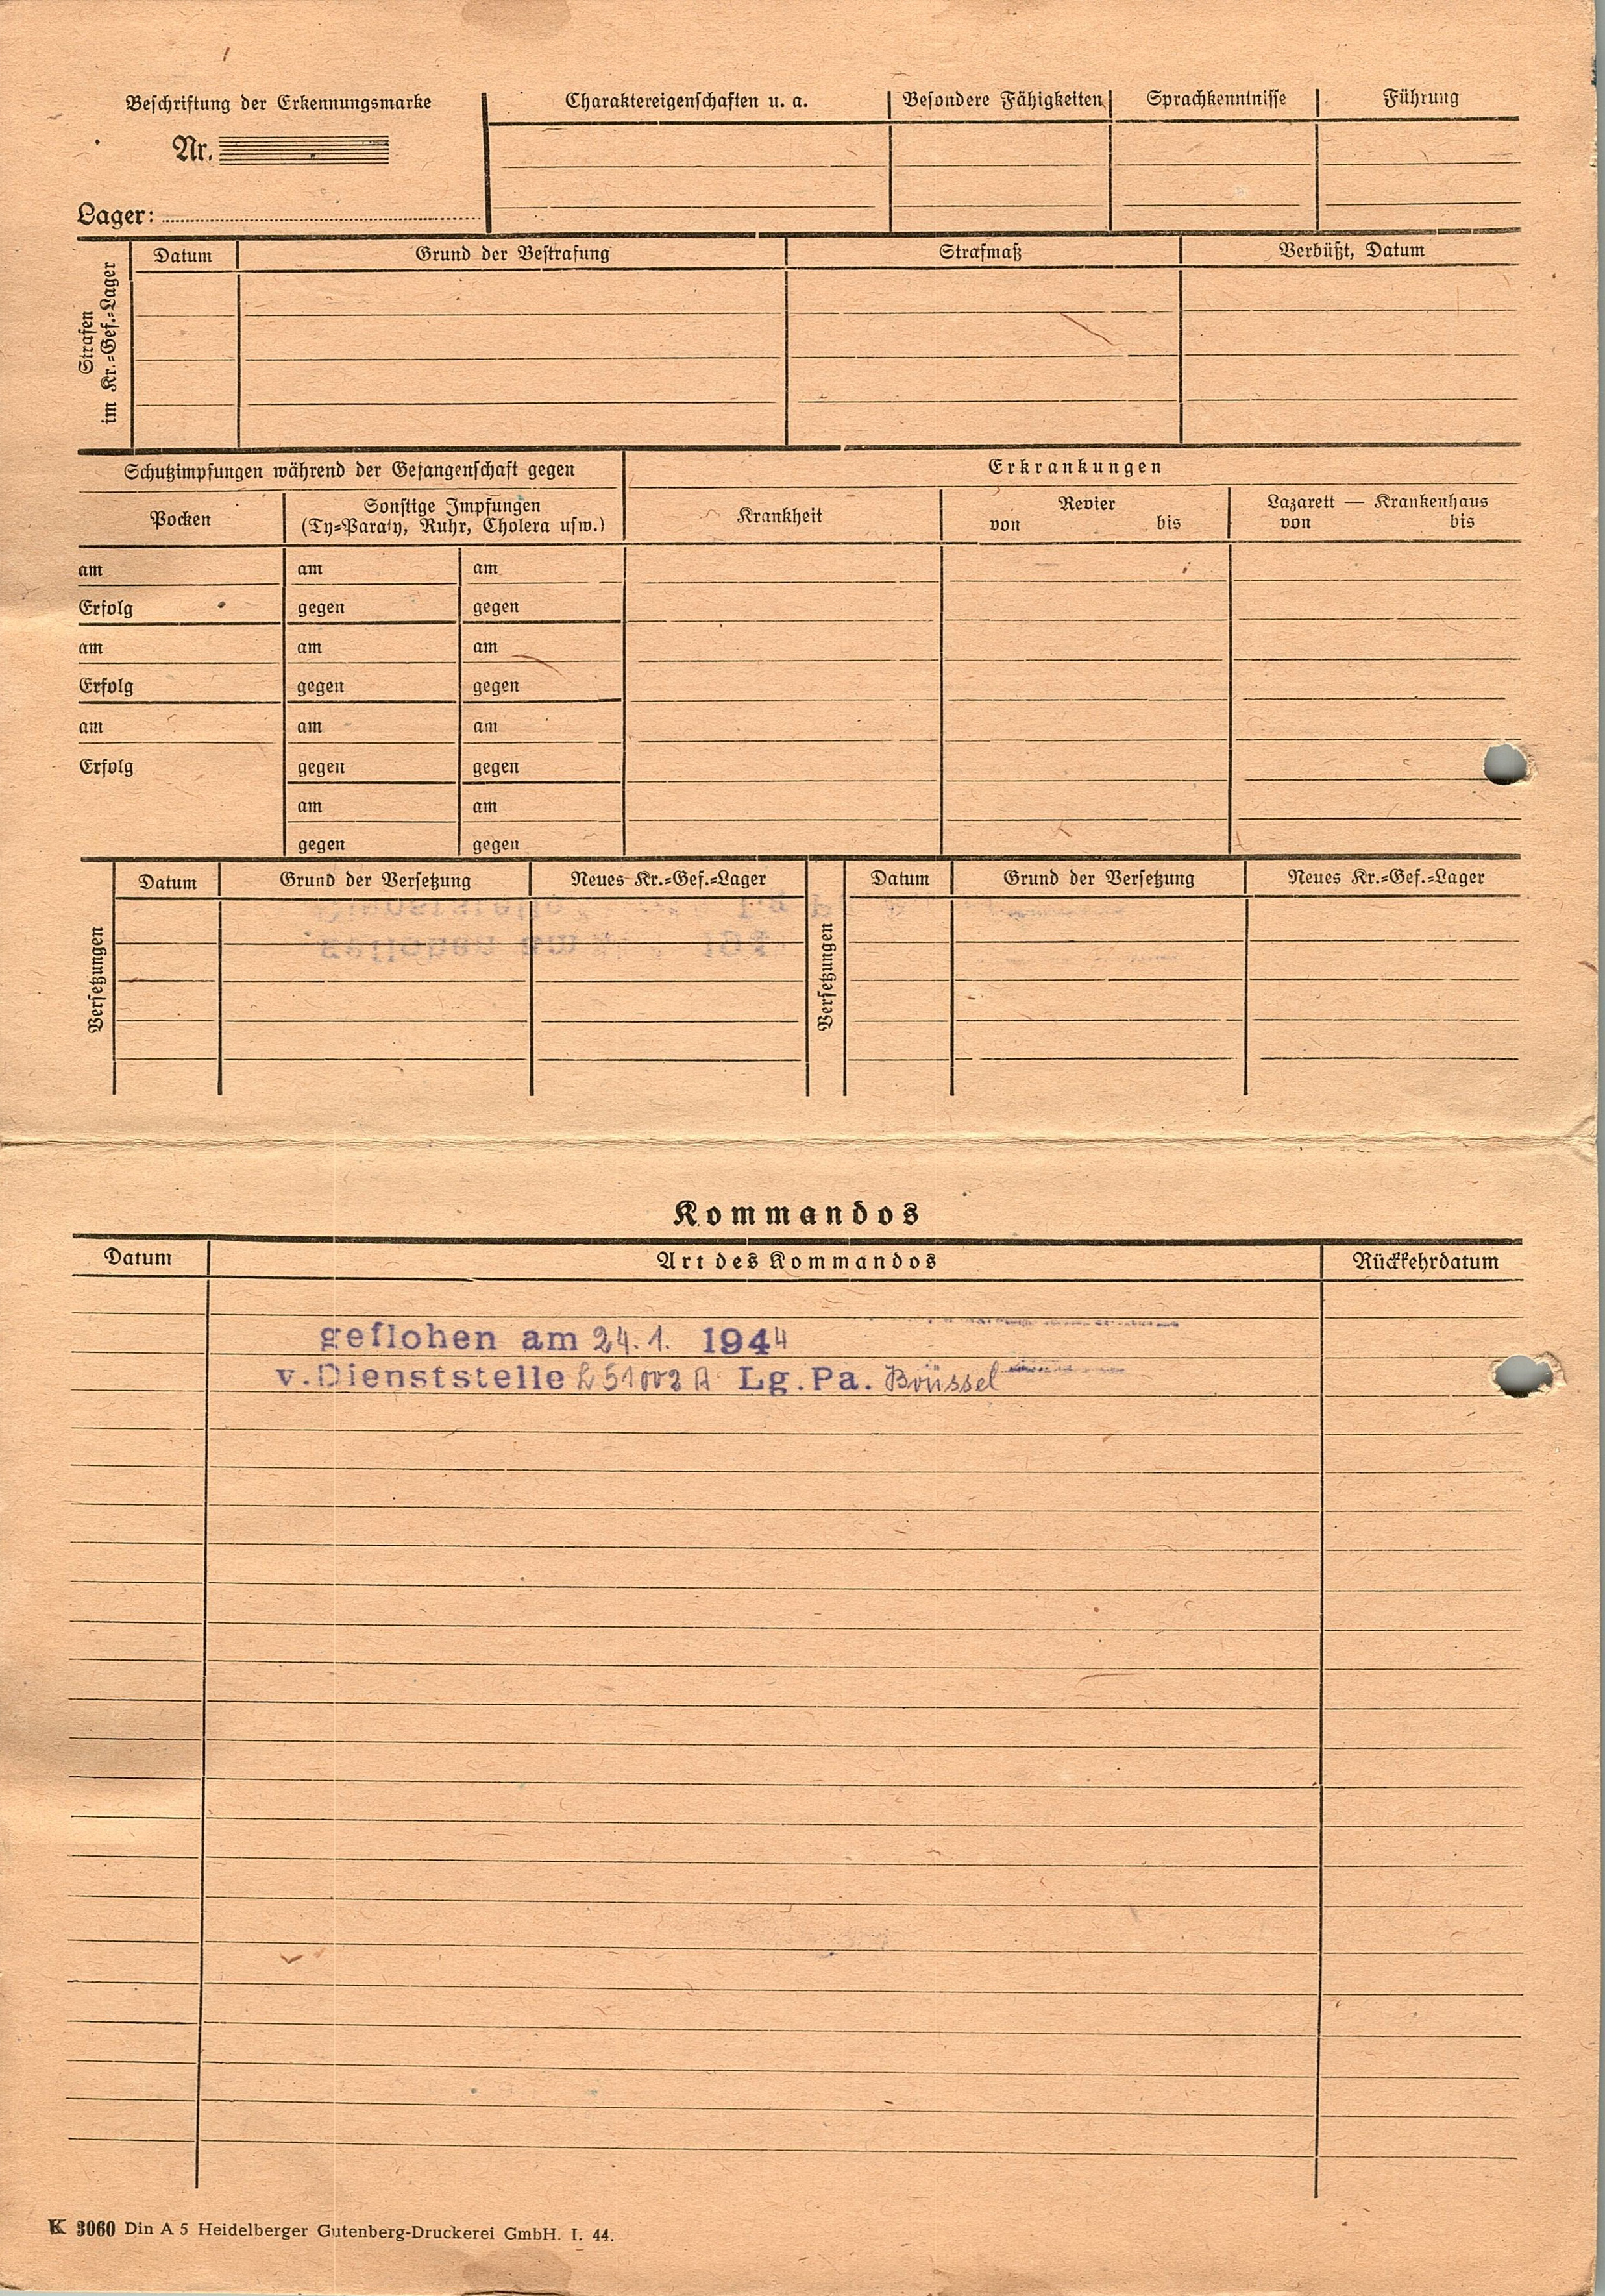 Beschriftung der Erkennungsmarke
Nr.
Lager:
Charaktereigenschaften u. a.
Besondere Fähigkeiten
Sprachkenntnisse
Führung
Strafen
im Kr.=Gef.=Lager
Datum
Grund der Bestrafung
Strafmaß
Verbüßt, Datum
Schutzimpfungen während der Gefangenschaft gegen
Pocken
Sonstige Impfungen
(Ty=Paraty, Ruhr, Cholera usw.)
am
am
am
Erfolg
gegen
gegen
am
am
am
Erfolg
gegen
gegen
am
am
am
Erfolg
gegen
gegen
am
am
gegen
gegen
Erkrankungen
Krankheit
Revier
von bis
Lazarett — Krankenhaus
von bis
Versetzungen
Datum
Grund der Versetzung
Neues Kr.=Gef.=Lager
Versetzungen
Datum
Grund der Versetzung
Neues Kr.=Gef.=Lager
Kommandos
Datum
Art des Kommandos
Rückkehrdatum
geflohen am 24.1. 1944
v.Dienststelle L 51002 A Lg.Pa. Brüssel
K 3060 Din A 5 Heidelberger Gutenberg-Druckerei GmbH. I. 44.